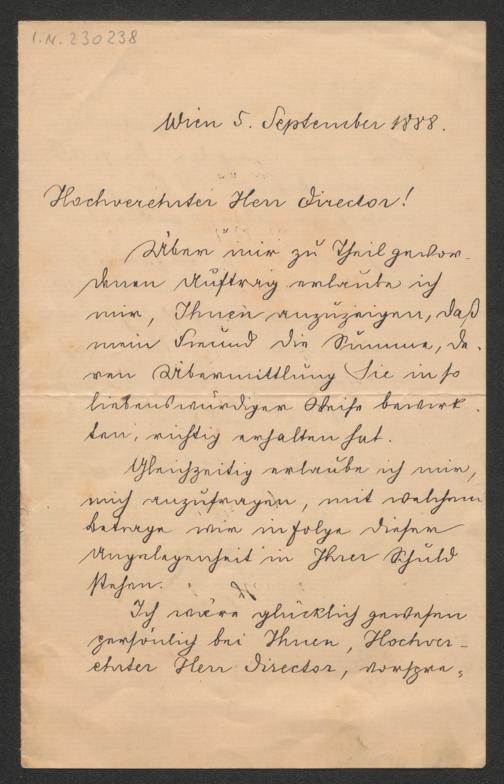 I.N. 230238
Wien 5. September 1888.
Hochverehrter Herr Director!
Über mir zu Theil gewor-
denen Auftrag erlaube ich
mir, Ihnen anzuzeigen, daß
mein Freund die Summe, de-
ren Übermittlung Sie in so
liebenswürdiger Weise bewirk-
ten, richtig erhalten hat.
Gleichzeitig erlaube ich mir,
mich anzufragen, mit welchem
Betrage wir infolge dieser
Angelegenheit in Ihrer Schuld
stehen.
Ich wäre glücklich gewesen
persönlich bei Ihnen, Hochver-
ehrter Herr Director, vorspre-